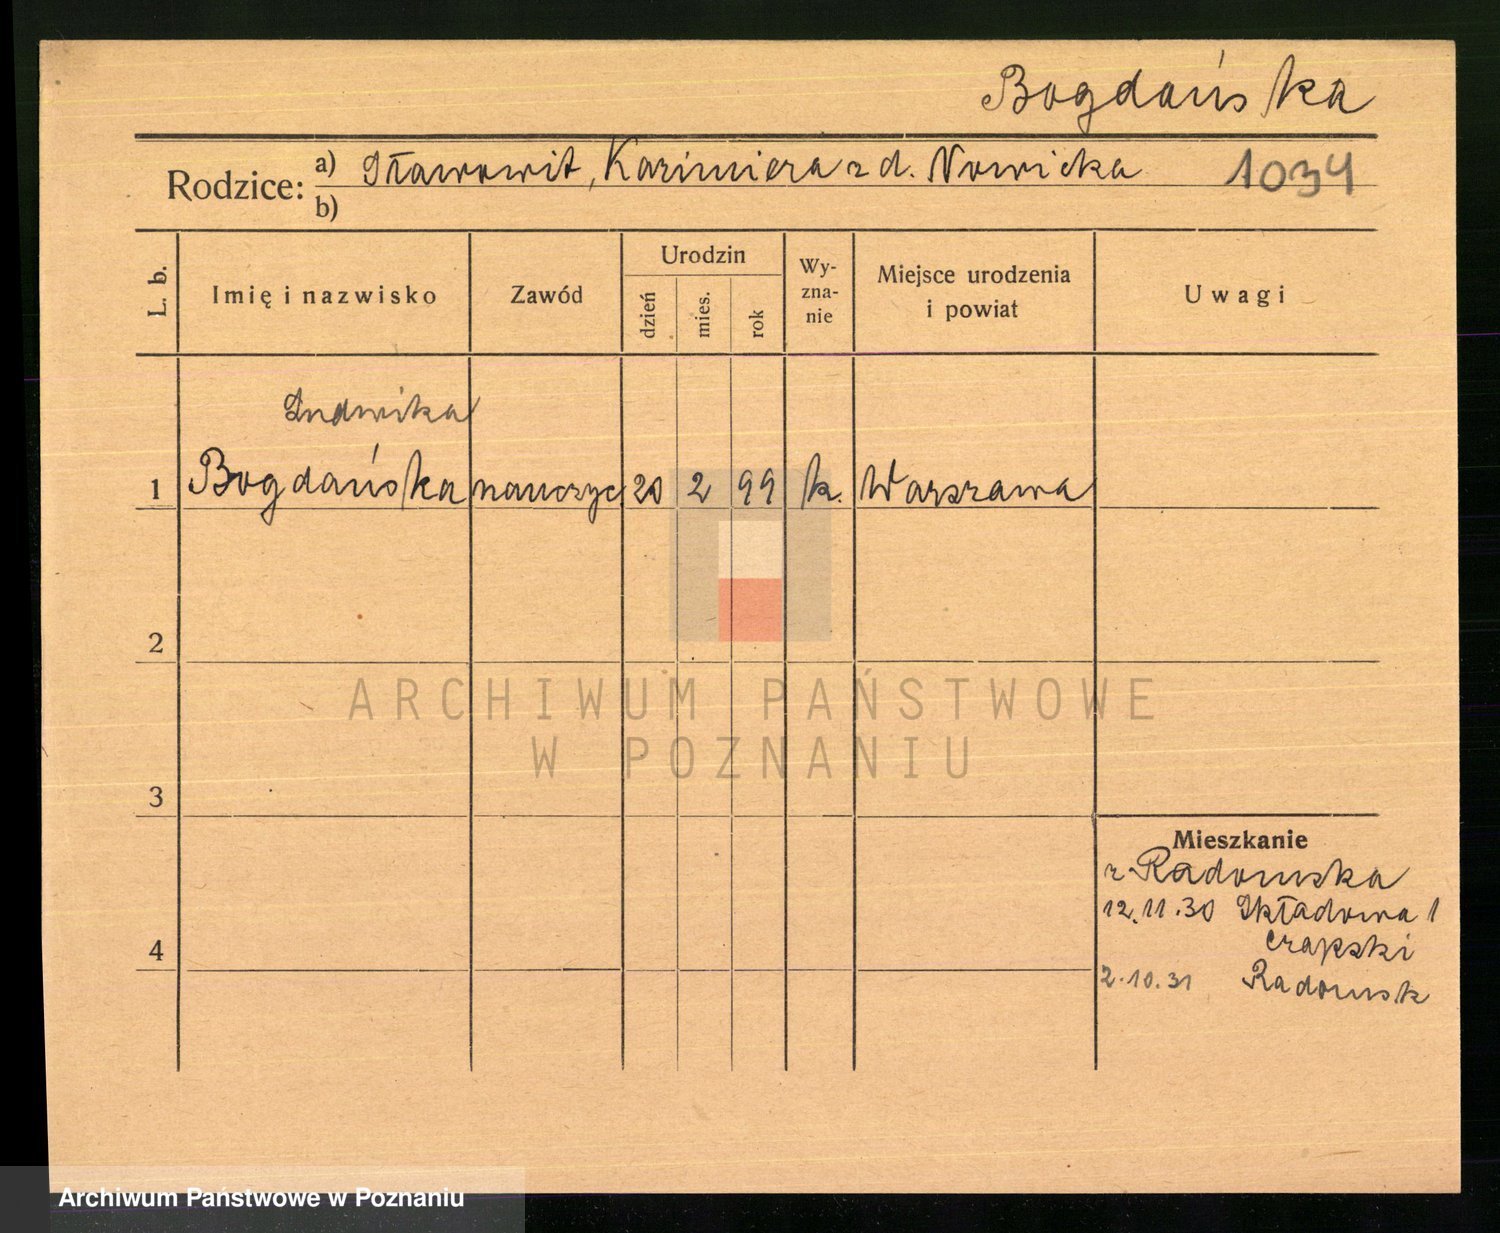 Bogdańska
Rodzice: a) Sławowit, Kazimiera z d. Nowicka 1034
b)
L. b. Imię i nazwisko Zawód Urodzin dzień mies. rok Wy-zna-nie Miejsce urodzenia i powiat Uwagi
Ludwika
1 Bogdańska nauczyc. 20 2 99 k. Warszawa
2
ARCHIWUM PAŃSTWOWE
W POZNANIU
3
Mieszkanie
z Radomska
12.11.30 Składowa 1
Czapski
4
2.10.31 Radomsk
Archiwum Państwowe w Poznaniu